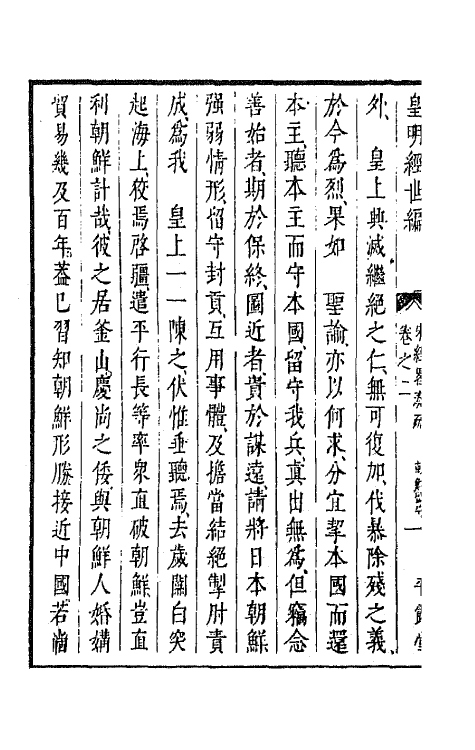 皇明經世編
卷之二
平露堂
外、　皇上興滅繼絕之仁、無可復加、伐暴除殘之義、
於今爲烈、果如　聖諭、亦以何求、分宜挈本國而還
本主、聽本主而守本國、留守我兵、眞出無爲、但竊念
善始者、期於保終、圖近者、貴於謀遠、請將日本朝鮮
强弱情形、留守封貢、互用事體、及擔當結絕掣肘責
成、爲我　皇上一一陳之、伏惟垂聽焉、去歲關白突
起海上、狡焉啓疆、遣平行長等率衆直破朝鮮、豈直
利朝鮮計哉、彼之居釜山、慶尚之倭、與朝鮮人婚媾
貿易幾及百年、葢已習知朝鮮形勝接近中國、若倘